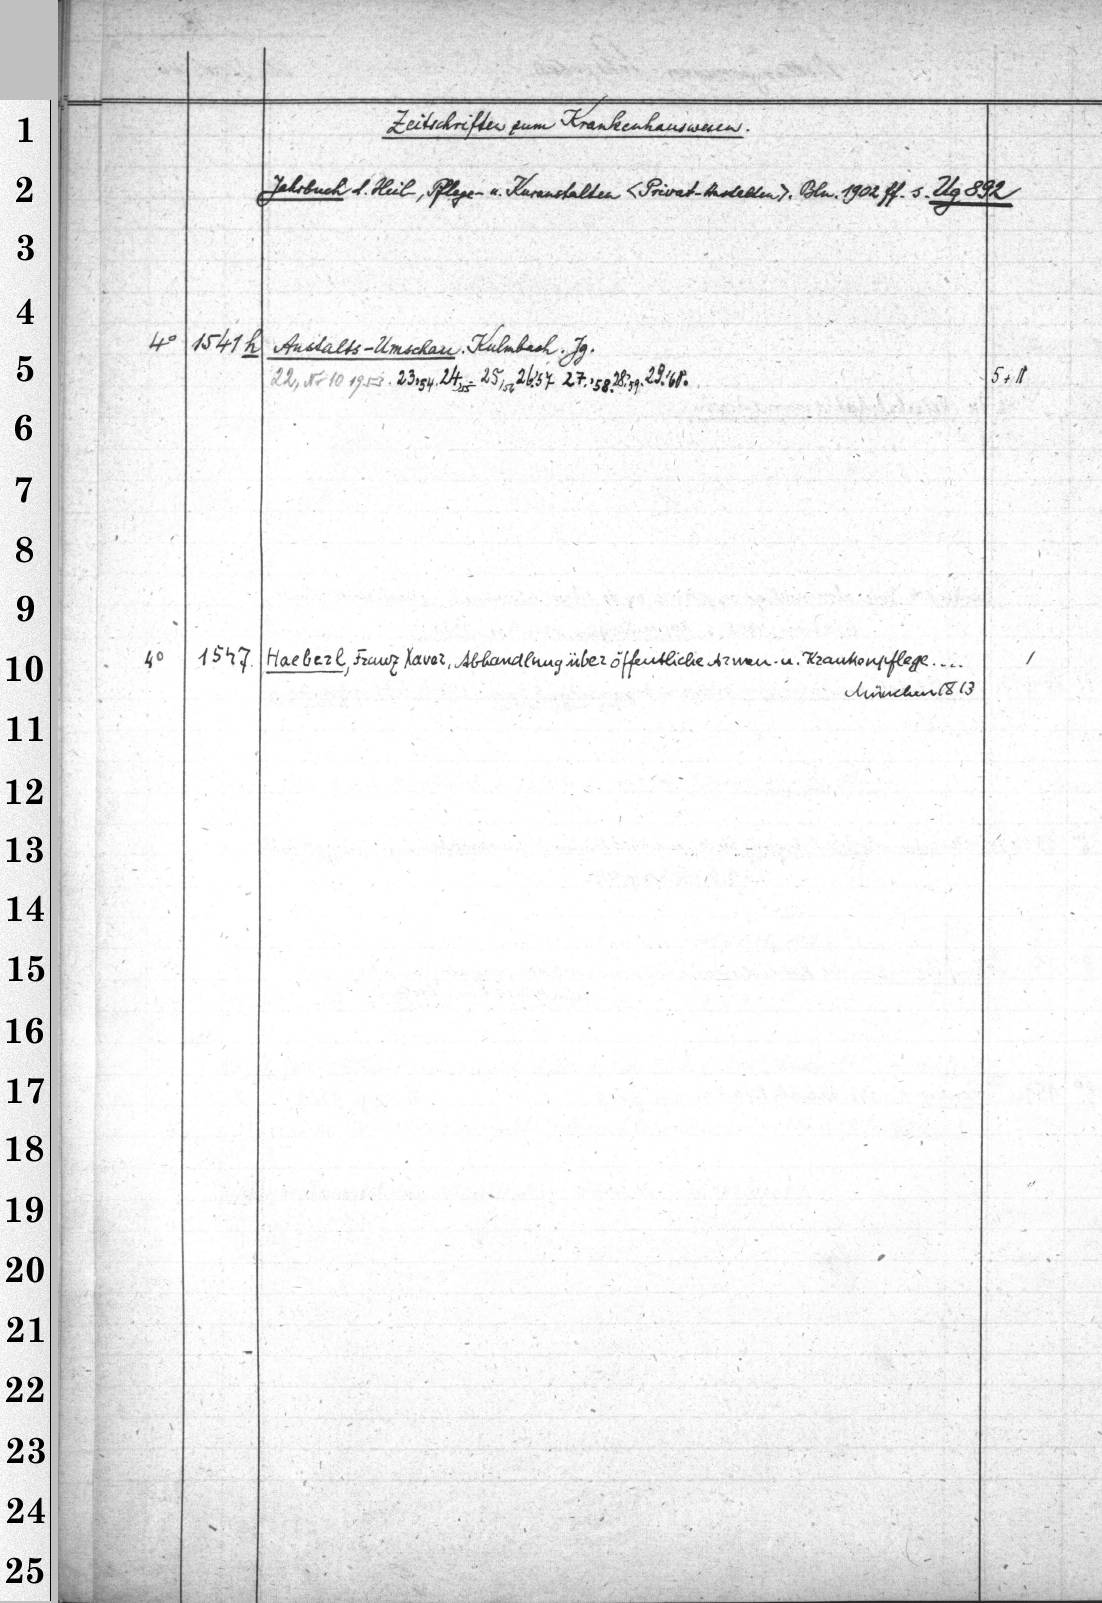 Zeitschriften zum Krankenhauswesen.
1
Jahrbuch d. Heil-, Pflege- u. Kuranstalten <Privat-Anstalten>. Bln. 1902 ff. s. Ug 892
2
3
4
4° 1541 h Anstalts-Umschau. Kulmbach. Jg.
22, Nr 10 1953. 23,'54. 24,'55 25,'56 26.'57 27.'58. 28.'59. 29.'61. 5 + II
5
6
7
8
9
4° 1547. Haeberl, Franz Xaver, Abhandlung über öffentliche Armen- u. Krankenpflege.... 1
10
München 1813
11
12
13
14
15
16
17
18
19
20
21
22
23
24
25